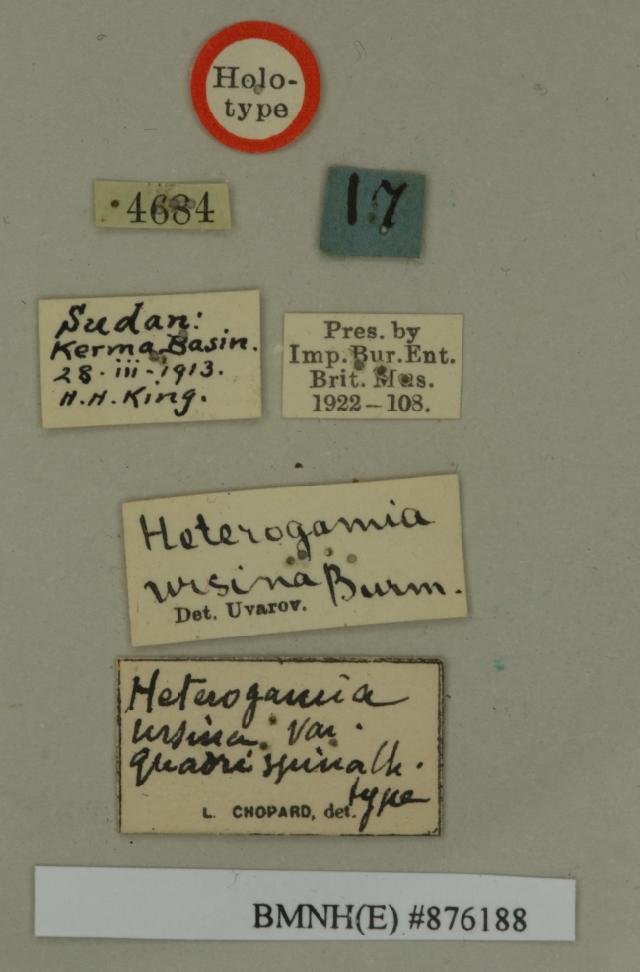 Holo-
type
4684
17
Sudan:
Kerma Basin.
28·iii·1913.
H.H. King.
Pres. by
Imp. Bur. Ent.
Brit. Mus.
1922–108.
Heterogamia
ursina Burm.
Det. Uvarov.
Heterogamia
ursina var.
quadrispina Ch.
type
L. CHOPARD, det.
BMNH(E) #876188